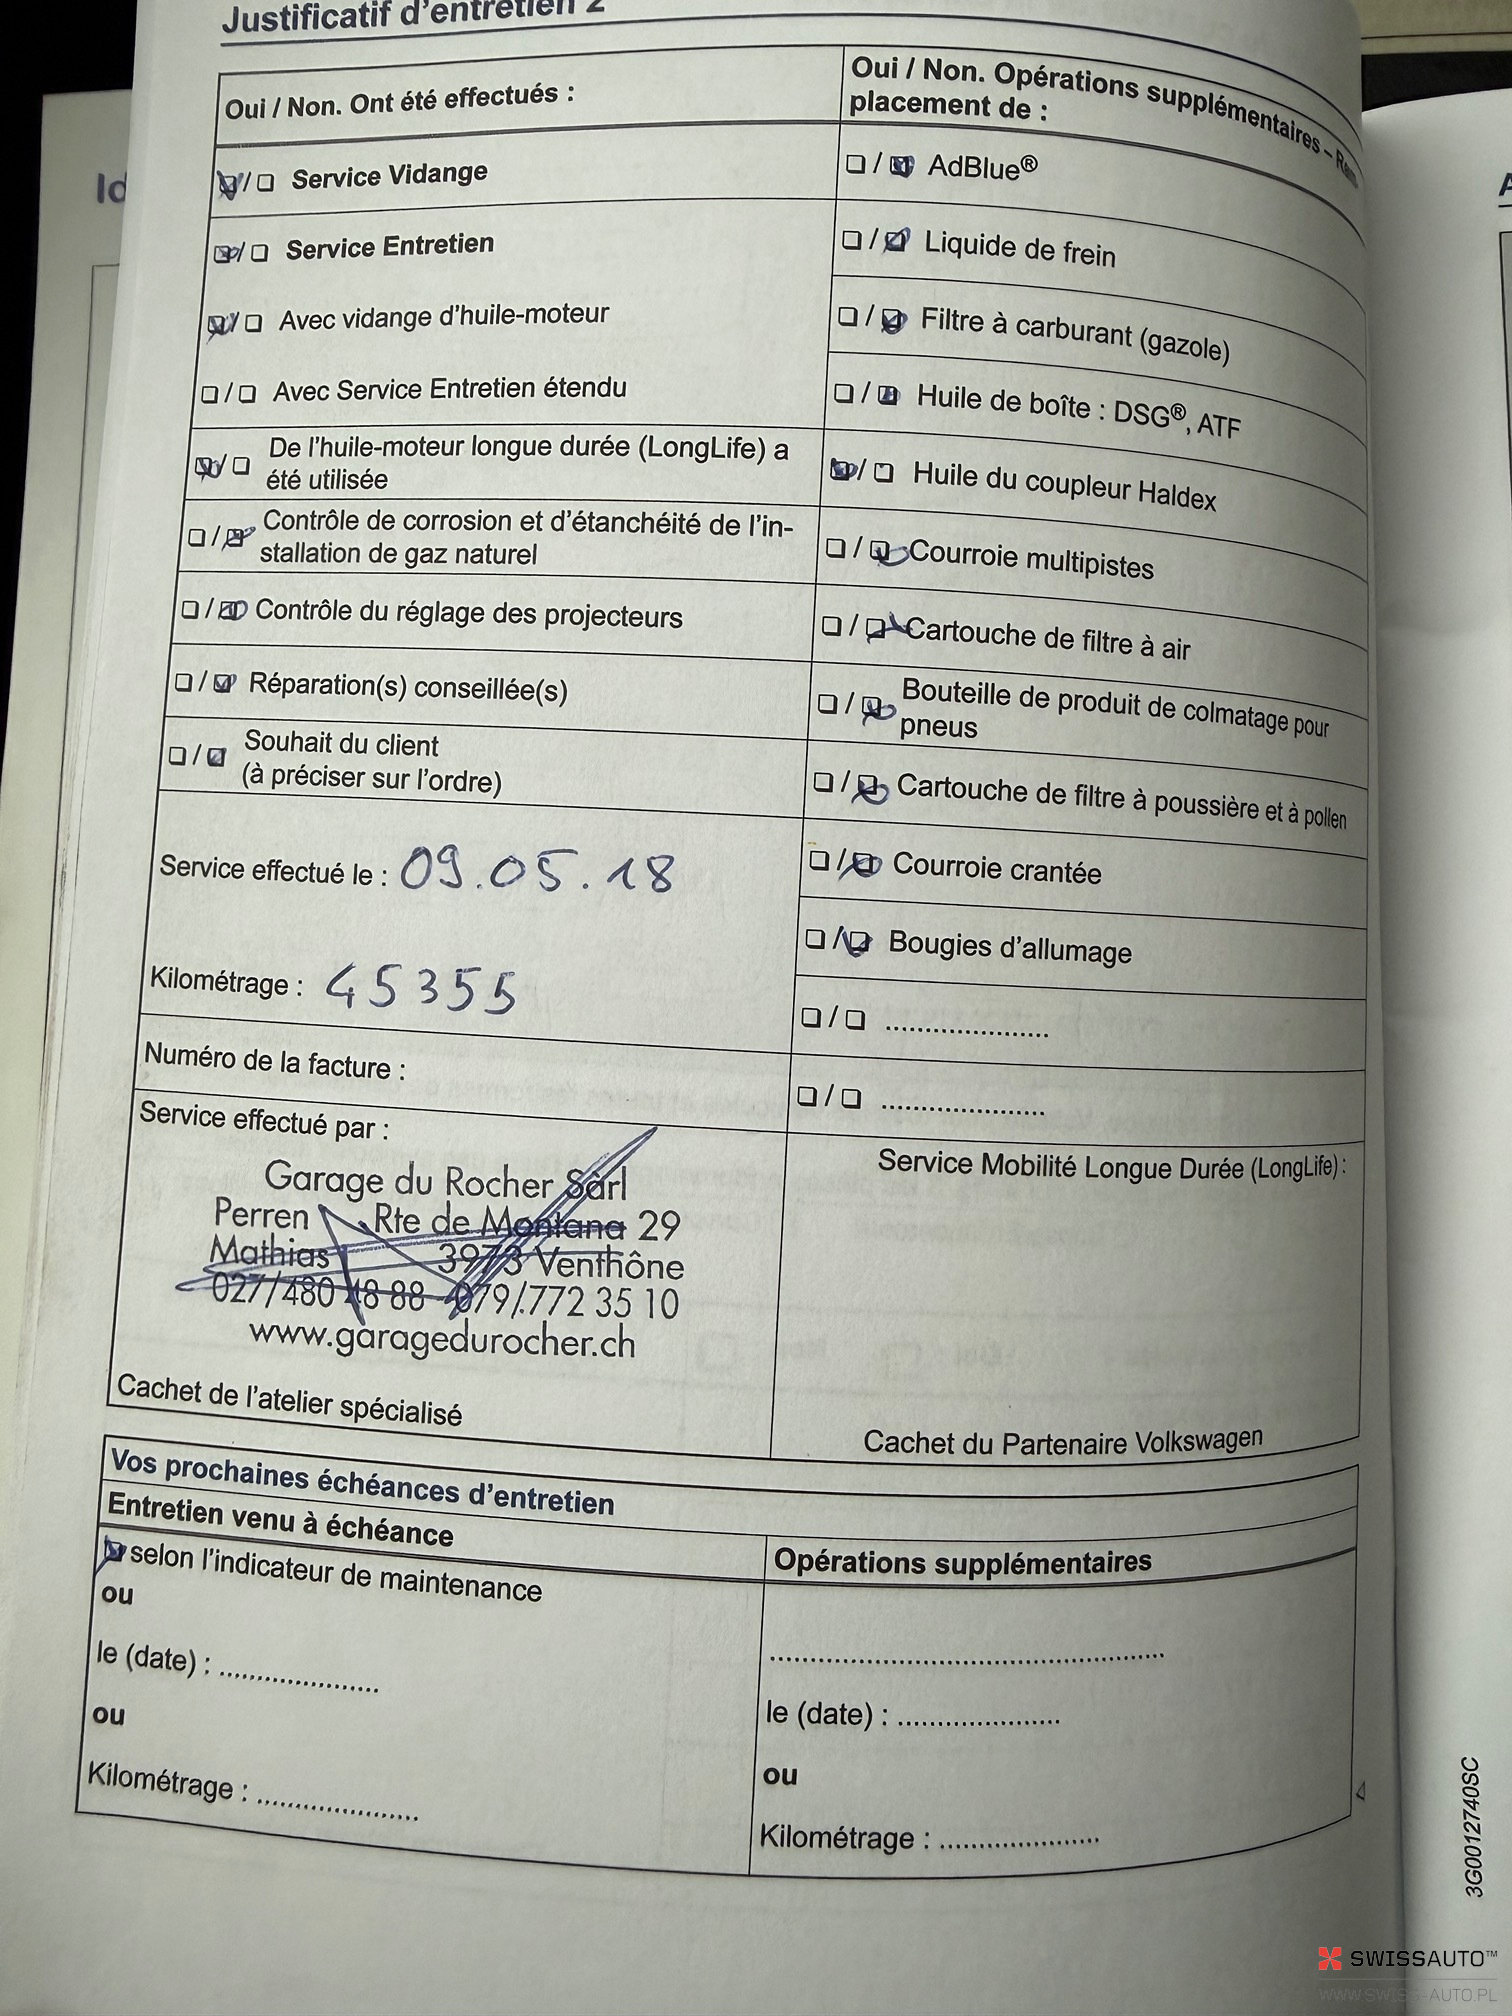 Justificatif d'entretien 2
Oui / Non. Ont été effectués :
☑/☐ Service Vidange
☑/☐ Service Entretien
☑/☐ Avec vidange d'huile-moteur
☐/☐ Avec Service Entretien étendu
☑/☐ De l'huile-moteur longue durée (LongLife) a
été utilisée
☐/☑ Contrôle de corrosion et d'étanchéité de l'in-
stallation de gaz naturel
☐/☑ Contrôle du réglage des projecteurs
☐/☑ Réparation(s) conseillée(s)
☐/☑ Souhait du client
(à préciser sur l'ordre)
Service effectué le : 09.05.18
Kilométrage : 45355
Numéro de la facture :
Service effectué par :
Garage du Rocher Sàrl
Perren Rte de Montana 29
Mathias 3973 Venthône
027/480 48 88 - 079/.772 35 10
www.garagedurocher.ch
Cachet de l'atelier spécialisé
Oui / Non. Opérations supplémentaires –
placement de :
☐/☑ AdBlue®
☐/☑ Liquide de frein
☐/☑ Filtre à carburant (gazole)
☐/☑ Huile de boîte : DSG®, ATF
☑/☐ Huile du coupleur Haldex
☐/☑ Courroie multipistes
☐/☑ Cartouche de filtre à air
☐/☑ Bouteille de produit de colmatage pour
pneus
☐/☑ Cartouche de filtre à poussière et à pollen
☐/☑ Courroie crantée
☐/☑ Bougies d'allumage
☐/☐ .....................
☐/☐ .....................
Service Mobilité Longue Durée (LongLife) :
Cachet du Partenaire Volkswagen
Vos prochaines échéances d'entretien
Entretien venu à échéance
☑ selon l'indicateur de maintenance
ou
le (date) : .....................
ou
Kilométrage : .....................
Opérations supplémentaires
..................................................
le (date) : .....................
ou
Kilométrage : .....................
Id
A
3G0012740SC
SWISSAUTO™
WWW.SWISS-AUTO.PL